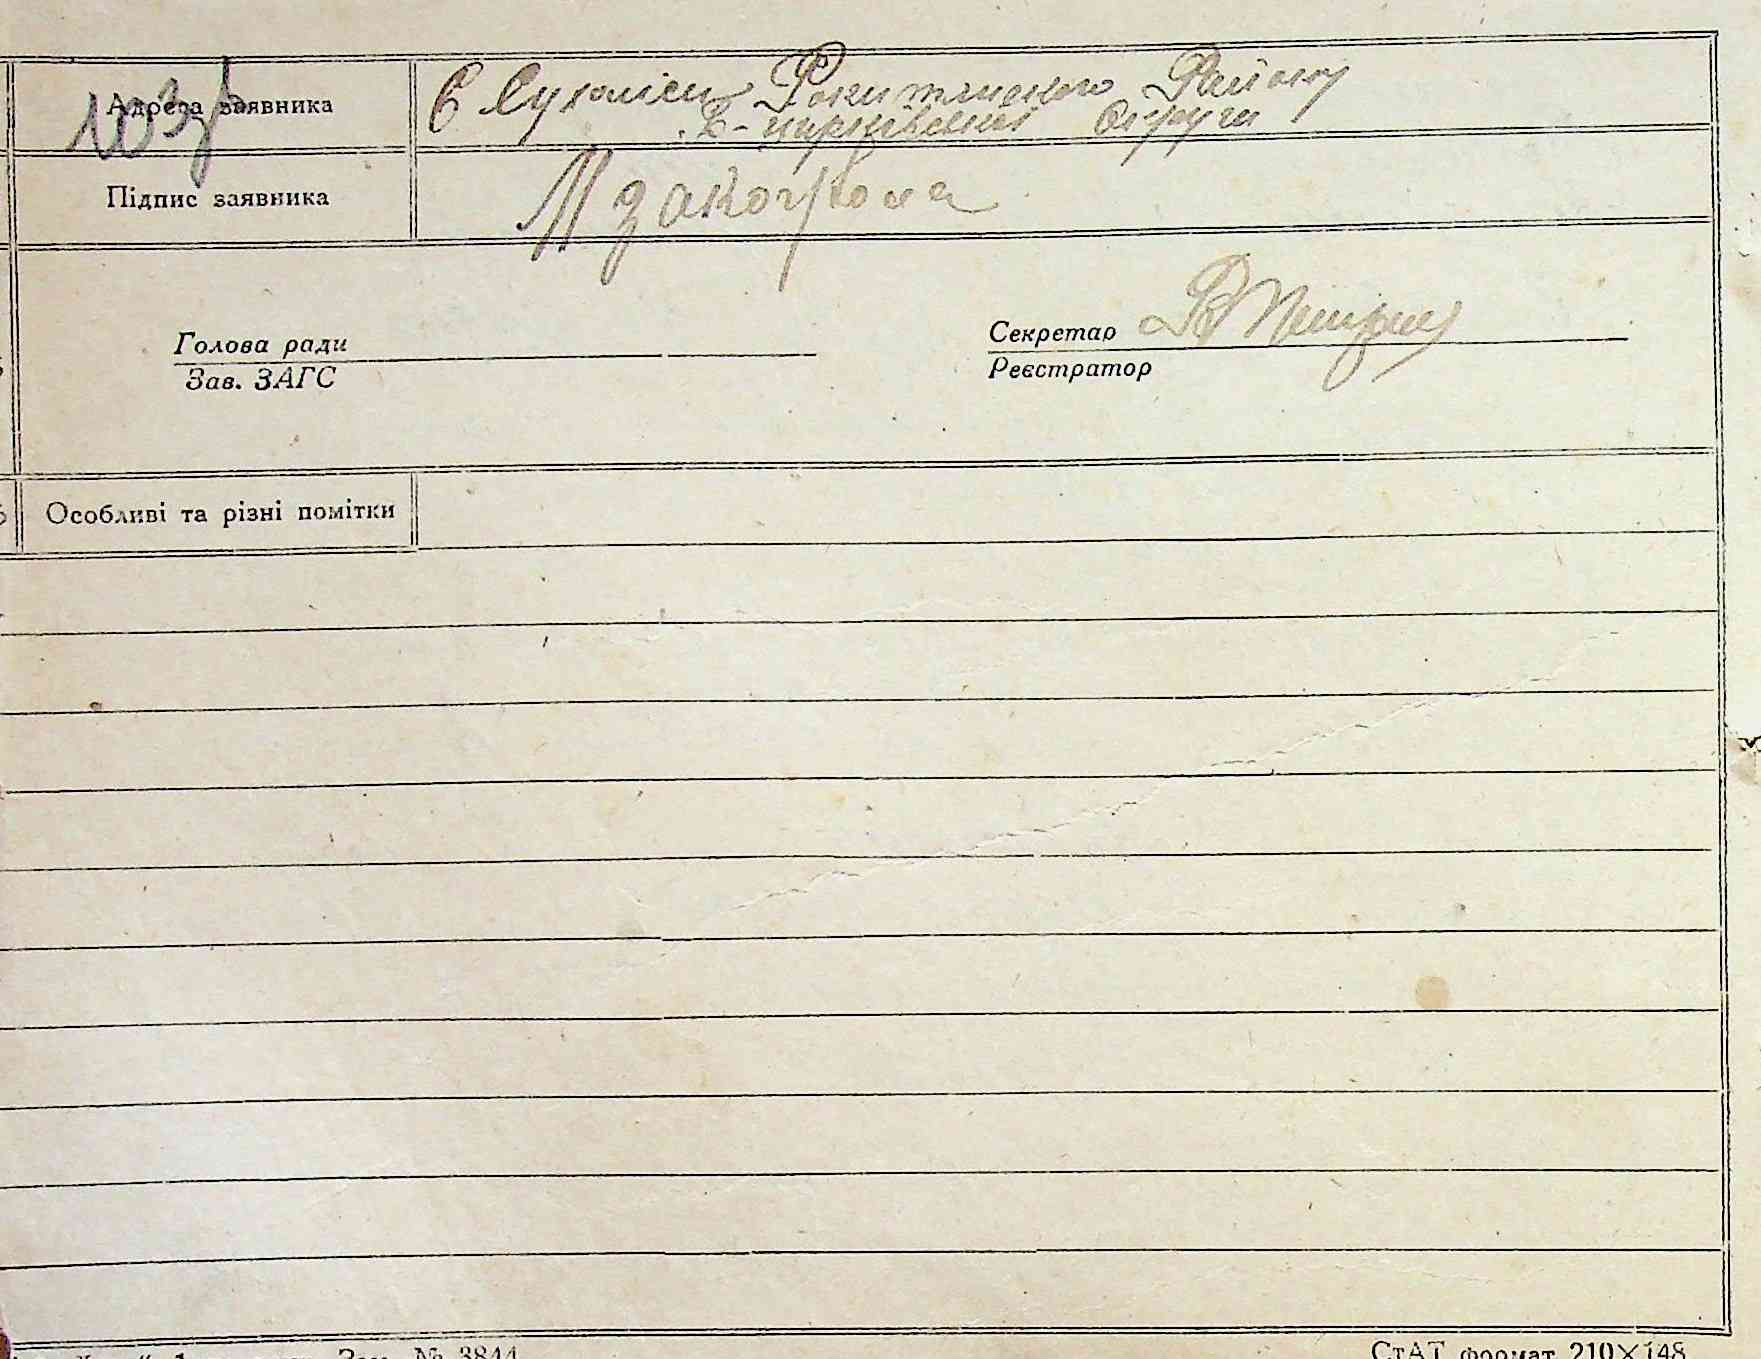 Адреса заявника
С Сухоліси Рокитянского Району
Б-церківської Округи
Підпис заявника
Голова ради
Зав. ЗАГС
Секретар
Реєстратор
Особливі та різні помітки
Зам. № 3844
СтАТ формат 210×148